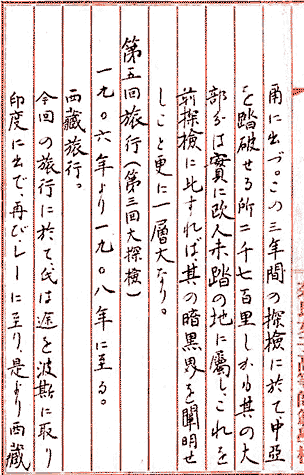 甬に出づ。この三年間の探檢に於て、中亞
を踏破せる所二千七百里しかも其の大
部分は實に欧人未踏の地に屬し、これを
前探檢に比すれば、其の暗黒界を闡明せ
しこと更に一層大なり。
第五回旅行(第三回大探檢)
一九〇六年より一九〇八年に至る。
西藏旅行。
今回の旅行に於て、氏は途を波斯に取り
印度に出で、再び、レーに至り、是より西藏